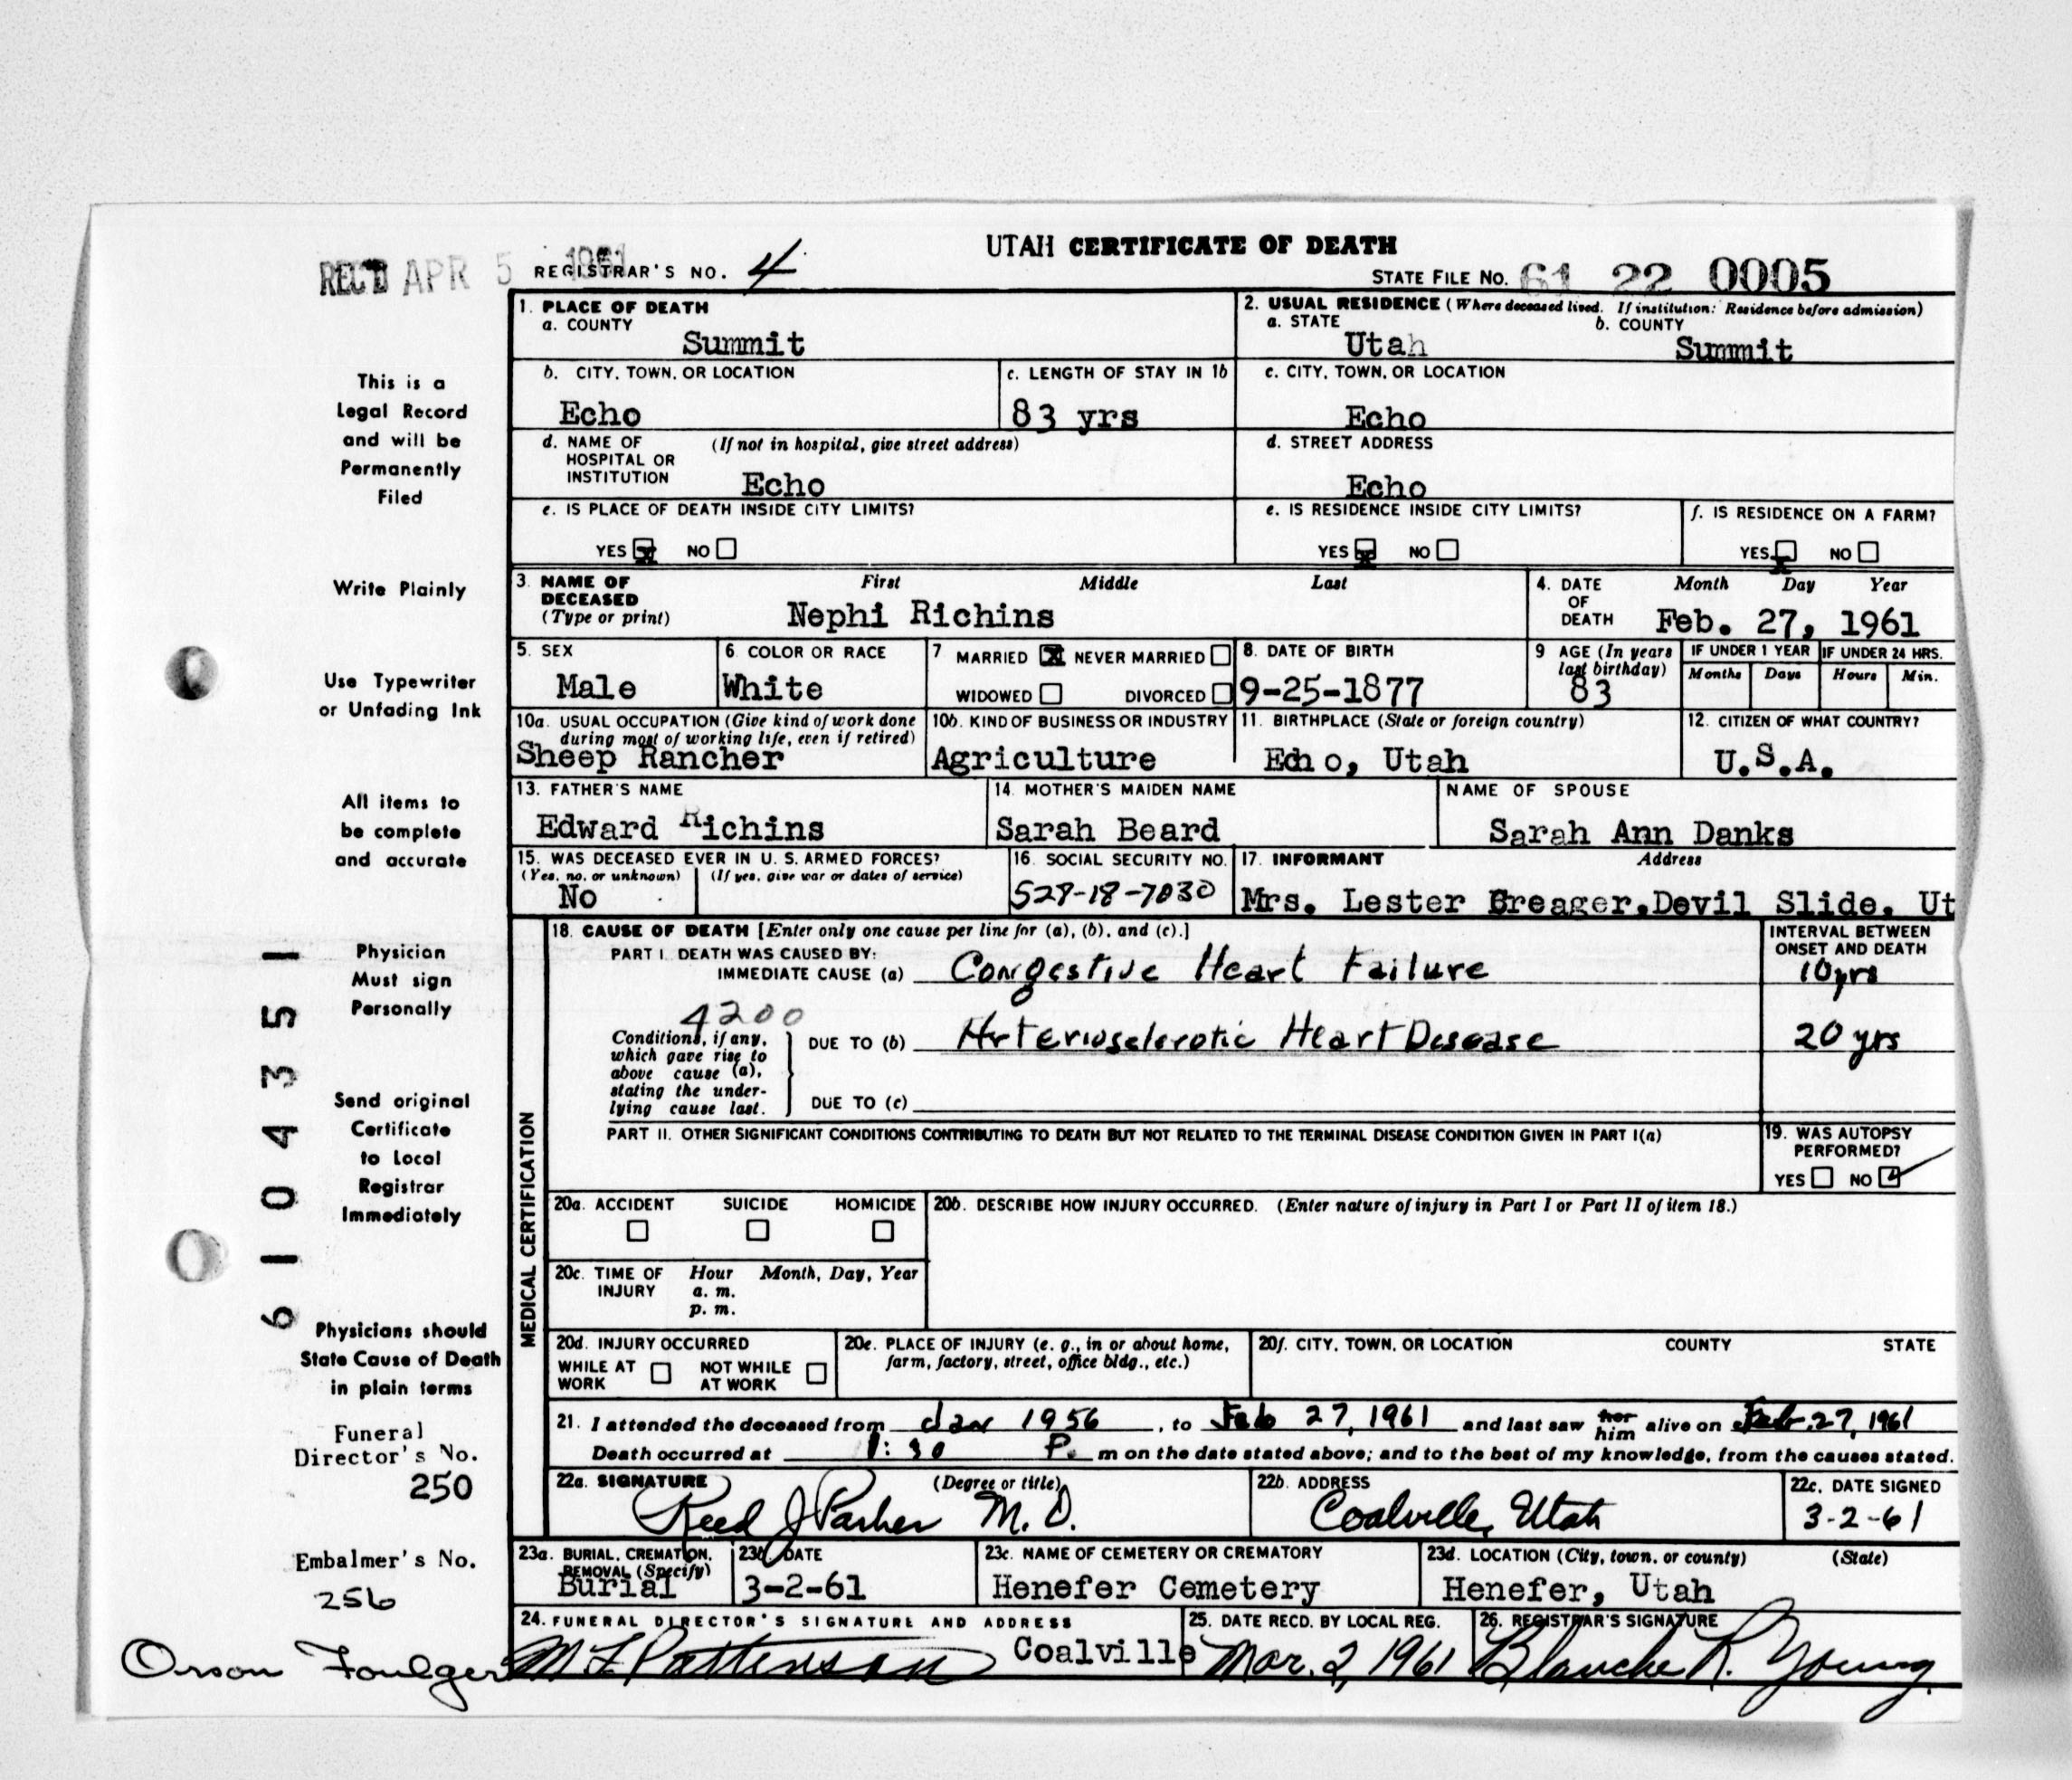 UTAH CERTIFICATE OF DEATH
REC'D APR 5 1961 REGISTRAR'S NO. 4 STATE FILE NO. 61 22 0005
1. PLACE OF DEATH
a. COUNTY
Summit
2. USUAL RESIDENCE (Where deceased lived. If institution: Residence before admission)
a. STATE b. COUNTY
Utah Summit
b. CITY, TOWN, OR LOCATION
Echo
c. LENGTH OF STAY IN 1b
83 yrs
c. CITY, TOWN, OR LOCATION
Echo
d. NAME OF (If not in hospital, give street address)
HOSPITAL OR
INSTITUTION
Echo
d. STREET ADDRESS
Echo
e. IS PLACE OF DEATH INSIDE CITY LIMITS?
YES x NO
e. IS RESIDENCE INSIDE CITY LIMITS?
YES x NO
f. IS RESIDENCE ON A FARM?
YES x NO
3. NAME OF First Middle Last
DECEASED
(Type or print)
Nephi Richins
4. DATE Month Day Year
OF
DEATH
Feb. 27, 1961
5. SEX
Male
6. COLOR OR RACE
White
7 MARRIED X NEVER MARRIED
WIDOWED DIVORCED
8. DATE OF BIRTH
9-25-1877
9 AGE (In years
last birthday)
83
IF UNDER 1 YEAR
Months Days
IF UNDER 24 HRS.
Hours Min.
10a. USUAL OCCUPATION (Give kind of work done
during most of working life, even if retired)
Sheep Rancher
10b. KIND OF BUSINESS OR INDUSTRY
Agriculture
11. BIRTHPLACE (State or foreign country)
Echo, Utah
12. CITIZEN OF WHAT COUNTRY?
U.S.A.
13. FATHER'S NAME
Edward Richins
14. MOTHER'S MAIDEN NAME
Sarah Beard
NAME OF SPOUSE
Sarah Ann Danks
15. WAS DECEASED EVER IN U. S. ARMED FORCES?
(Yes, no, or unknown) (If yes, give war or dates of service)
No
16. SOCIAL SECURITY NO.
17. INFORMANT Address
Mrs. Lester Creager, Devil Slide, Ut
MEDICAL CERTIFICATION
18. CAUSE OF DEATH [Enter only one cause per line for (a), (b), and (c).]
INTERVAL BETWEEN
ONSET AND DEATH
PART I. DEATH WAS CAUSED BY:
IMMEDIATE CAUSE (a) Congestive Heart Failure 10 yrs
4200
Conditions, if any,
which gave rise to
above cause (a),
stating the under-
lying cause last.
DUE TO (b) Arteriosclerotic Heart Disease 20 yrs
DUE TO (c)
PART II. OTHER SIGNIFICANT CONDITIONS CONTRIBUTING TO DEATH BUT NOT RELATED TO THE TERMINAL DISEASE CONDITION GIVEN IN PART I(a)
19. WAS AUTOPSY
PERFORMED?
YES NO
20a. ACCIDENT SUICIDE HOMICIDE
20b. DESCRIBE HOW INJURY OCCURRED. (Enter nature of injury in Part I or Part II of item 18.)
20c. TIME OF Hour Month, Day, Year
INJURY a. m.
p. m.
20d. INJURY OCCURRED
WHILE AT NOT WHILE
WORK AT WORK
20e. PLACE OF INJURY (e. g., in or about home,
farm, factory, street, office bldg., etc.)
20f. CITY, TOWN, OR LOCATION COUNTY STATE
21. I attended the deceased from Jan 1956, to Feb 27, 1961 and last saw her him alive on Feb. 27, 1961
Death occurred at 1:30 P. m on the date stated above; and to the best of my knowledge, from the causes stated.
22a. SIGNATURE (Degree or title)
Reed J Parker M. D.
22b. ADDRESS
Coalville, Utah
22c. DATE SIGNED
3-2-61
23a. BURIAL, CREMATION,
REMOVAL (Specify)
Burial
23b. DATE
3-2-61
23c. NAME OF CEMETERY OR CREMATORY
Henefer Cemetery
23d. LOCATION (City, town, or county) (State)
Henefer, Utah
24. FUNERAL DIRECTOR'S SIGNATURE AND ADDRESS
Coalville
25. DATE RECD. BY LOCAL REG.
Mar. 2, 1961
26. REGISTRAR'S SIGNATURE
Blanche R. Young
This is a
Legal Record
and will be
Permanently
Filed
Write Plainly
Use Typewriter
or Unfading Ink
All items to
be complete
and accurate
Physician
Must sign
Personally
Send original
Certificate
to Local
Registrar
Immediately
Physicians should
State Cause of Death
in plain terms
Funeral
Director's No.
250
Embalmer's No.
256
Orson Foulger
M L Pattenson
6104351